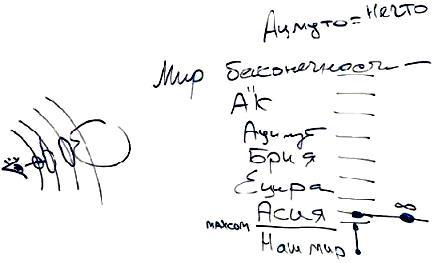 Ацмуто=нечто
Мир бесконечности
А"К
Ацилут
Брия
Ецира
Асия
∞
махсом
Наш мир